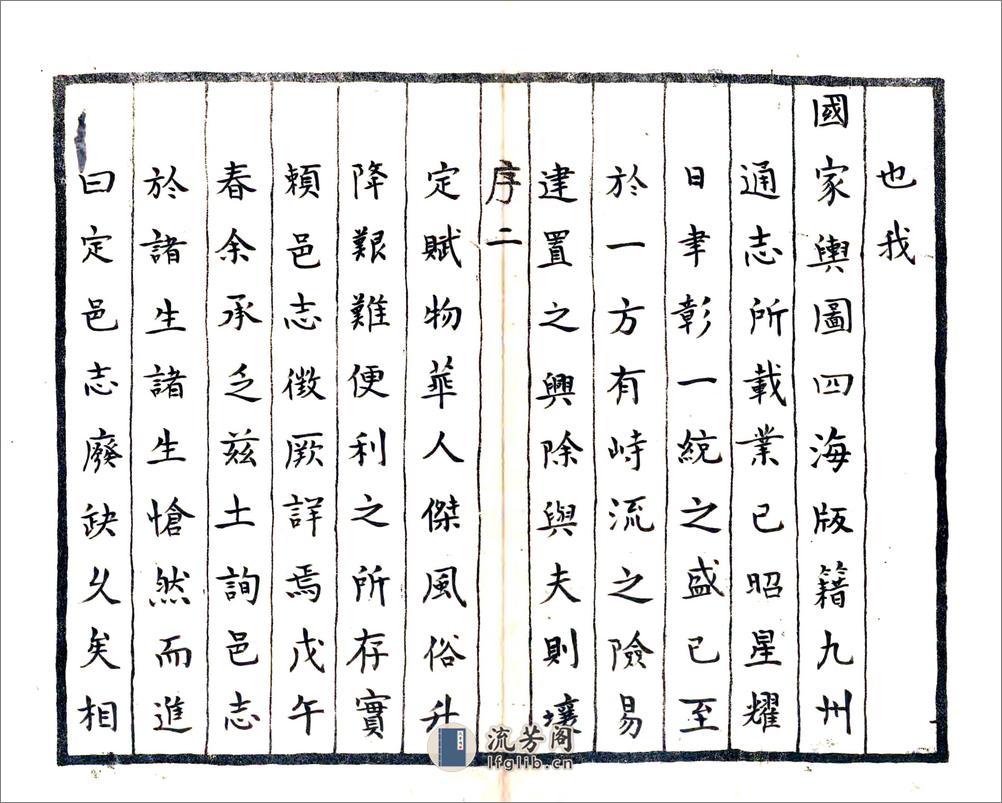 也我
國家輿圖四海版籍九州
通志所載業已昭星耀
日聿彰一統之盛已至
於一方有峙流之險易
建置之興除與夫則壤
序 二
定賦物華人傑風俗升
降艱難便利之所存實
賴邑志徵厥詳焉戊午
春余承乏兹土詢邑志
於諸生諸生愴然而進
曰定邑志廢缺久矣相
流芳阁
lfglib.cn